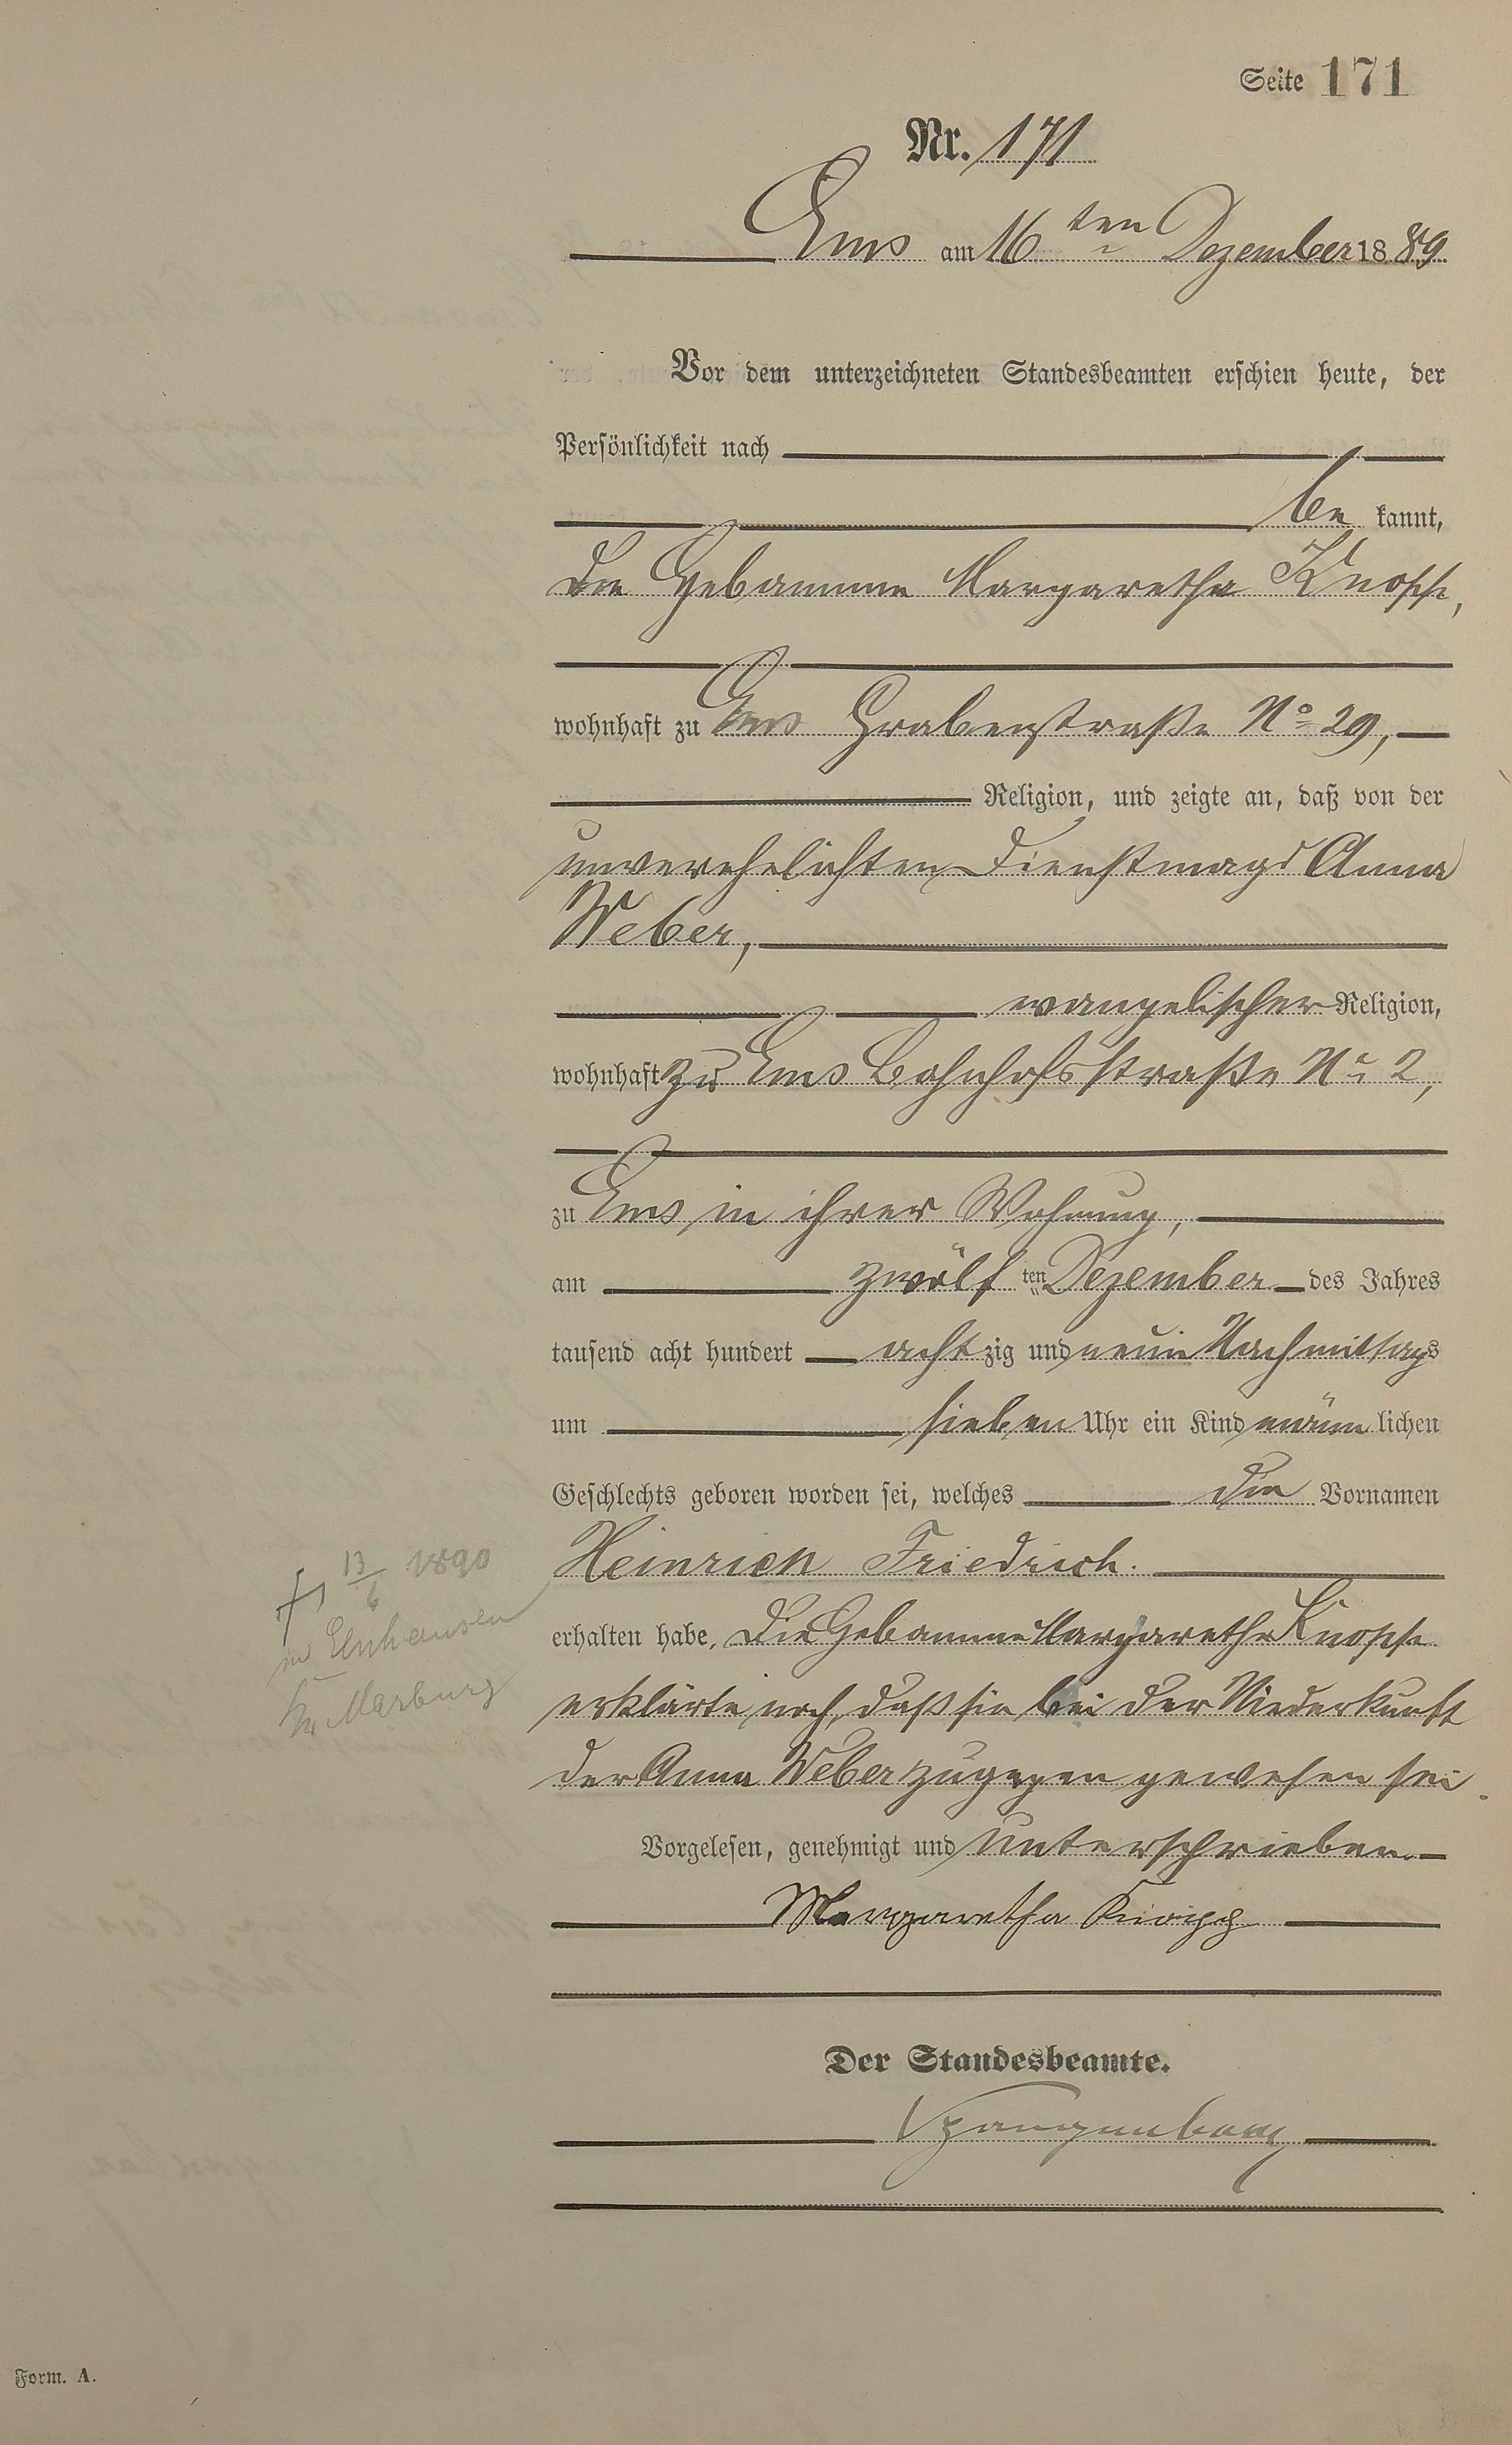 Seite 171
Nr. 171
Ems am 16ten Dezember 1889
Vor dem unterzeichneten Standesbeamten erschien heute, der
Persönlichkeit nach
be kannt,
die Hebamme Margaretha Knopp,
wohnhaft zu Ems Grabenstraße No 29,
Religion, und zeigte an, daß von der
unverehelichten Dienstmagd Anna
Weber,
evangelischer Religion,
wohnhaft zu Ems Bahnhofsstraße No 2,
zu Ems in ihrer Wohnung,
am zwölf ten Dezember des Jahres
tausend acht hundert acht zig und neun Nachmittags
um sieben Uhr ein Kind männ lichen
Geschlechts geboren worden sei, welches die Vornamen
Heinrich Friedrich.
† 13/6 1890
in
Kr Marburg
erhalten habe. Die Hebamme Margaretha Knopp
erklärte noch, daß sie bei der Niederkunft
der Anna Weber zugegen gewesen sei.
Vorgelesen, genehmigt und unterschrieben.
Margaretha Knopp
Der Standesbeamte.
Form. A.